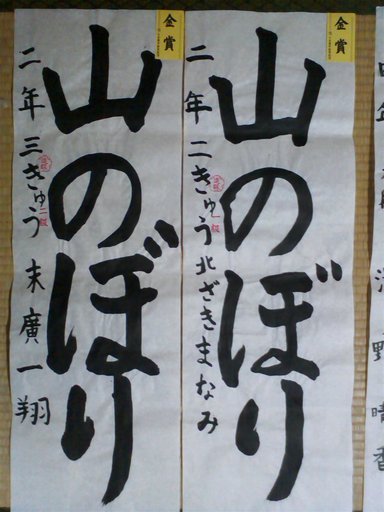 金賞
山のぼり
二年二きゅう北ざきまなみ
金賞
山のぼり
二年三きゅう末廣一翔
野晴香